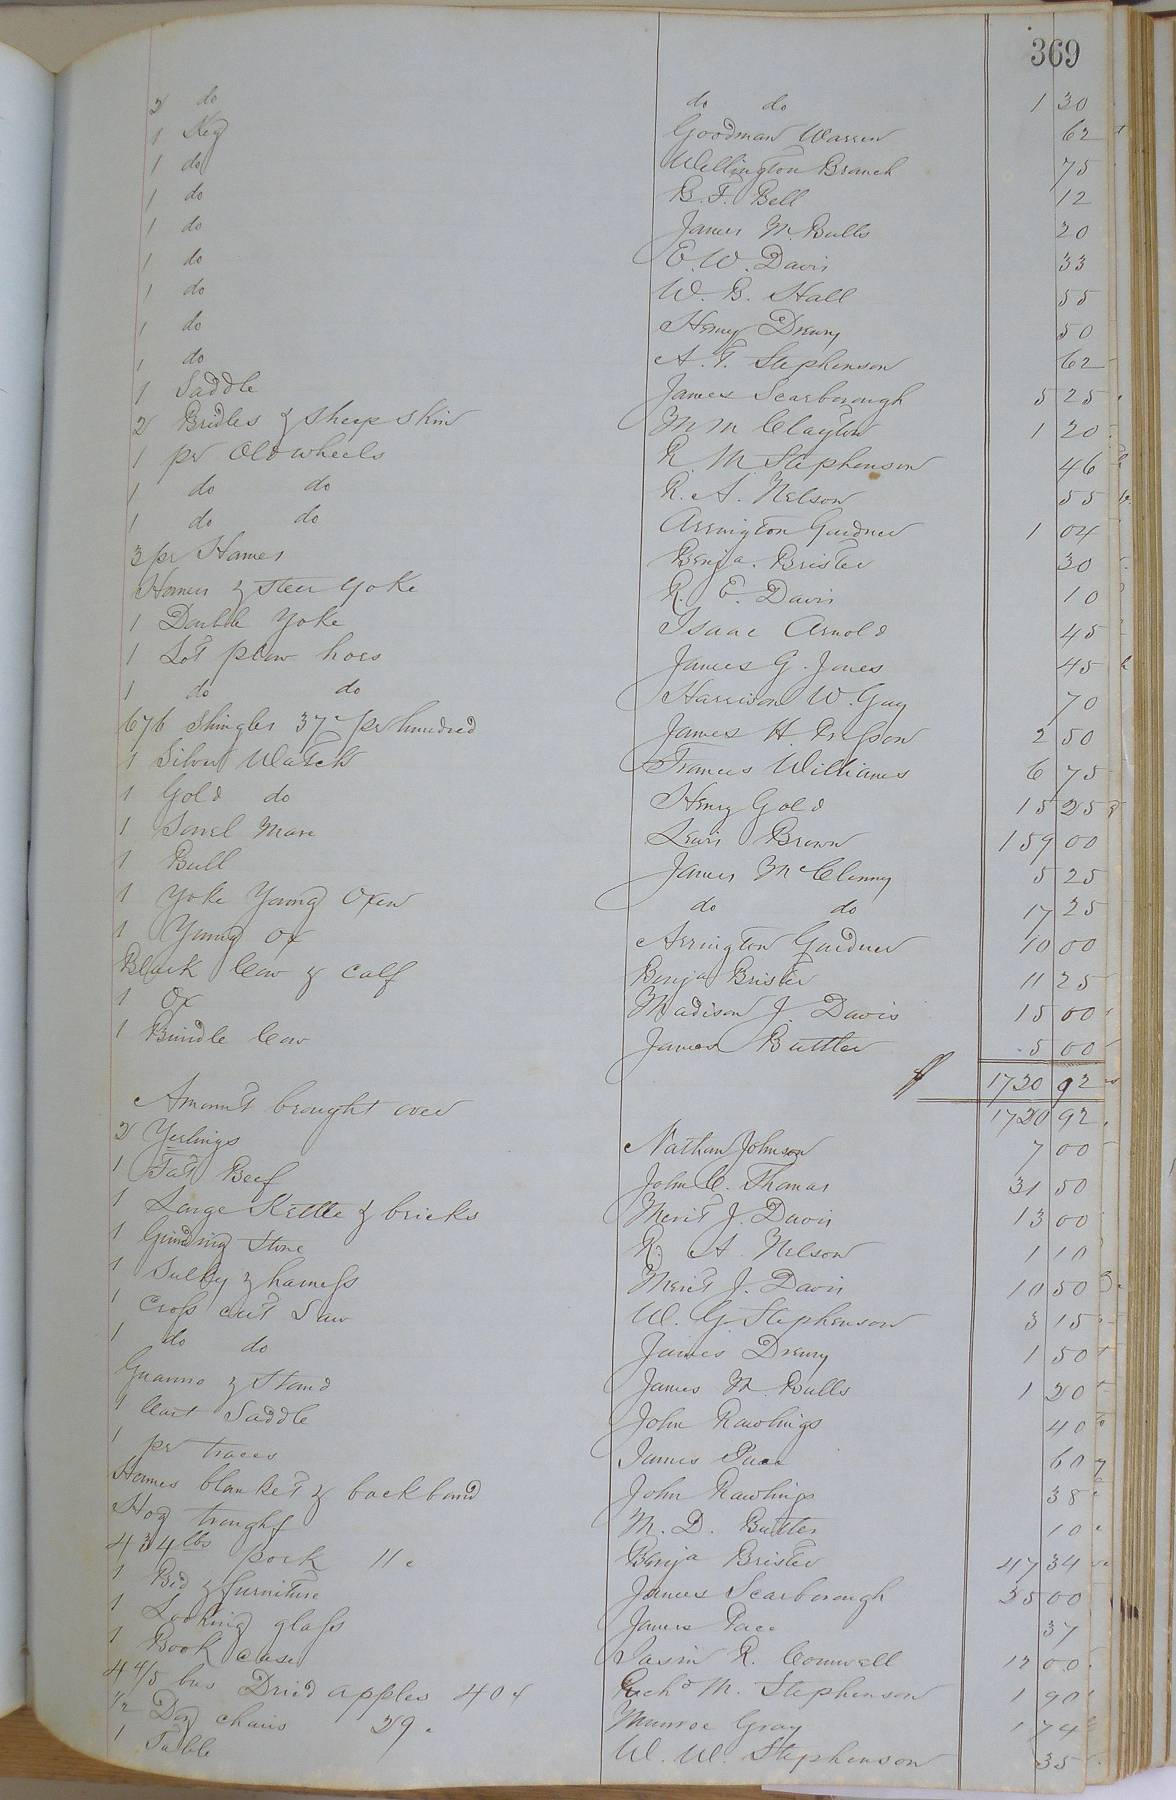 369
2 do do do 1 30
1 Keg Goodman Warren 62
1 do Wellington Branch 75
1 do B. F. Bell 12
1 do James M. Bulls 20
1 do E. W. Davis 33
1 do W. B. Hall 55
1 do Henry Drewry 50
1 do A. T. Stephenson 62
1 Saddle James Scarborough 5 25
2 Bridles & sheep skin M M Clayton 1 20
1 pr Old wheels R. M. Stephenson 46
1 do do R. A. Nelson 55
1 do do Arrington Gardner 1 04
3 pr Hames Benja. Brister 30
Hames & steer yoke R. E. Davis 10
1 Double Yoke Isaac Arnold 45
1 Lot plow hoes James G. Jones 45
1 do do Harrison W. Guy 70
676 Shingles 37 pr hundred James H 2 50
1 Silver Watch Frances Williams 6 75
1 Gold do Henry Gold 15 25
1 Sorrel Mare Lewis Brown 159 00
1 Bull James McClenny 5 25
1 Yoke Young Oxen do do 17 25
1 Young Ox Arrington Gardner 10 00
Black Cow & calf Benja Brister 11 25
1 Ox Madison J. Davis 15 00
1 Brindle Cow James Buttler 5 00
$ 1720 92
Amount brought over 1720 92
2 Yerlings Nathan Johnson 7 00
1 Fat Beef John C. Thomas 31 50
1 Large Kettle & bricks Merit J. Davis 13 00
1 Grinding Stone R. A. Nelson 1 10
1 Sulky & harness Merit J. Davis 10 50
1 Cross cut Saw W. G. Stephenson 3 15
1 do do James Drewry 1 50
Guanno & Stand James M. Bulls 1 20
1 Cart Saddle John Rawlings 40
1 pr traces James Pace 60
Hames blanket & backband John Rawlings 38
Hog troughs M. D. Butler 10
434 lbs pork 11c Benja Brister 47 34
1 Bed & furniture James Scarborough 35 00
1 Looking glass James Pace 37
1 Book case R. Cornwell 12 00
4 4/5 bus Dried apples 40¢ Richd M. Stephenson 1 90
1/2 Doz chairs 29c Munroe Gray 1 74
1 Table W. W. Stephenson 35